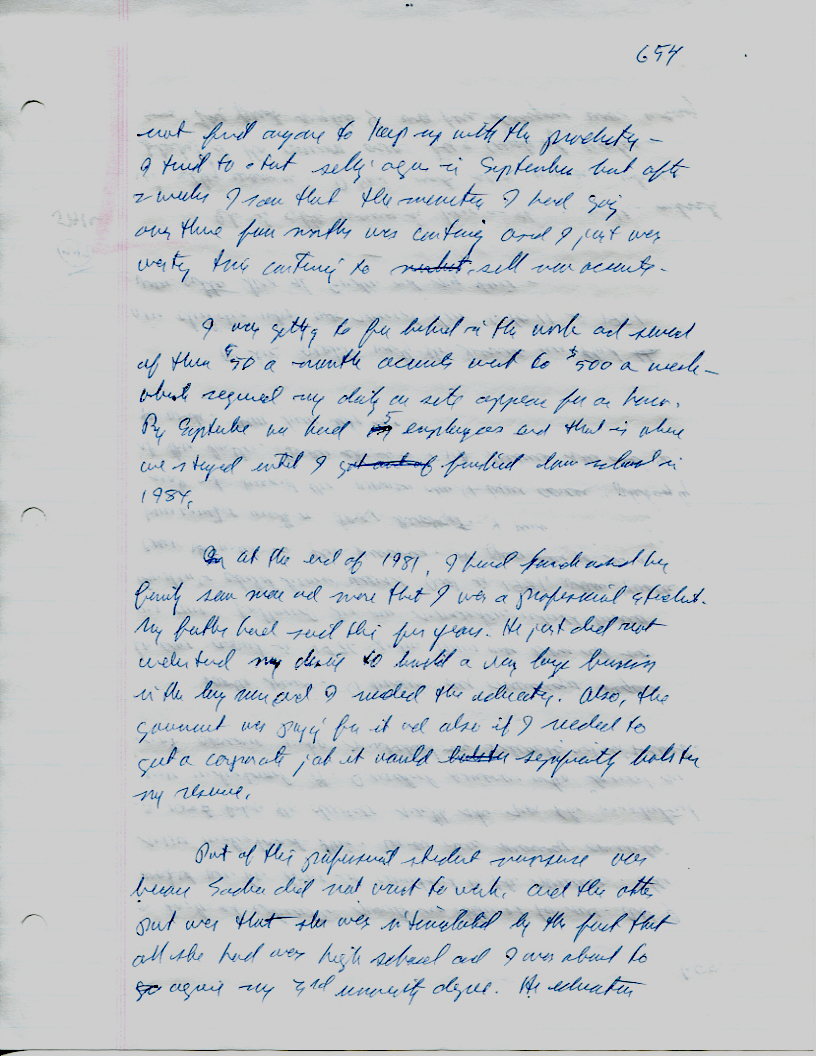 654
not find anyone to keep up with the production -
I tried to start selling again in September but after
2 weeks I saw that the momentum I had going
over those four months was continuing and I just was
wasting time continuing to sell new accounts.
I was getting to far behind in the work and several
of these $50 a month accounts went to $500 a week -
which required my daily on site appear for an hour.
By September we had 5 employees and that is where
we stayed until I got out of finished law school in
1984.
at the end of 1981, I had
family saw more and more that I was a professional student.
My father had said this for years. He just did not
understand my desire to build a very large business
in the long run and I needed the education. Also, the
government was paying for it and also if I needed to
get a corporate job it would significantly bolster
my resume.
Part of this professional student nonsense was
because Sandra did not want to work and the other
part was that she was intimidated by the fact that
all she had was high school and I was about to
go acquire my 3rd university degree. Her education